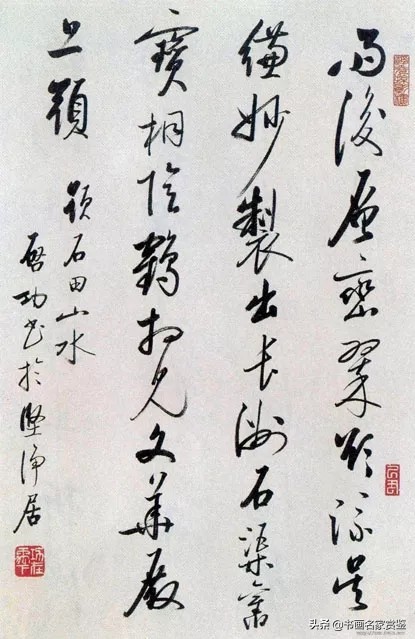 雨後層巒翠欲流吳
縑妙製出長洲石渠舊
寶桐陰鶴見文華殿
上頭 題石田山水
啟功書於堅淨居
头条 @书画名家赏鉴